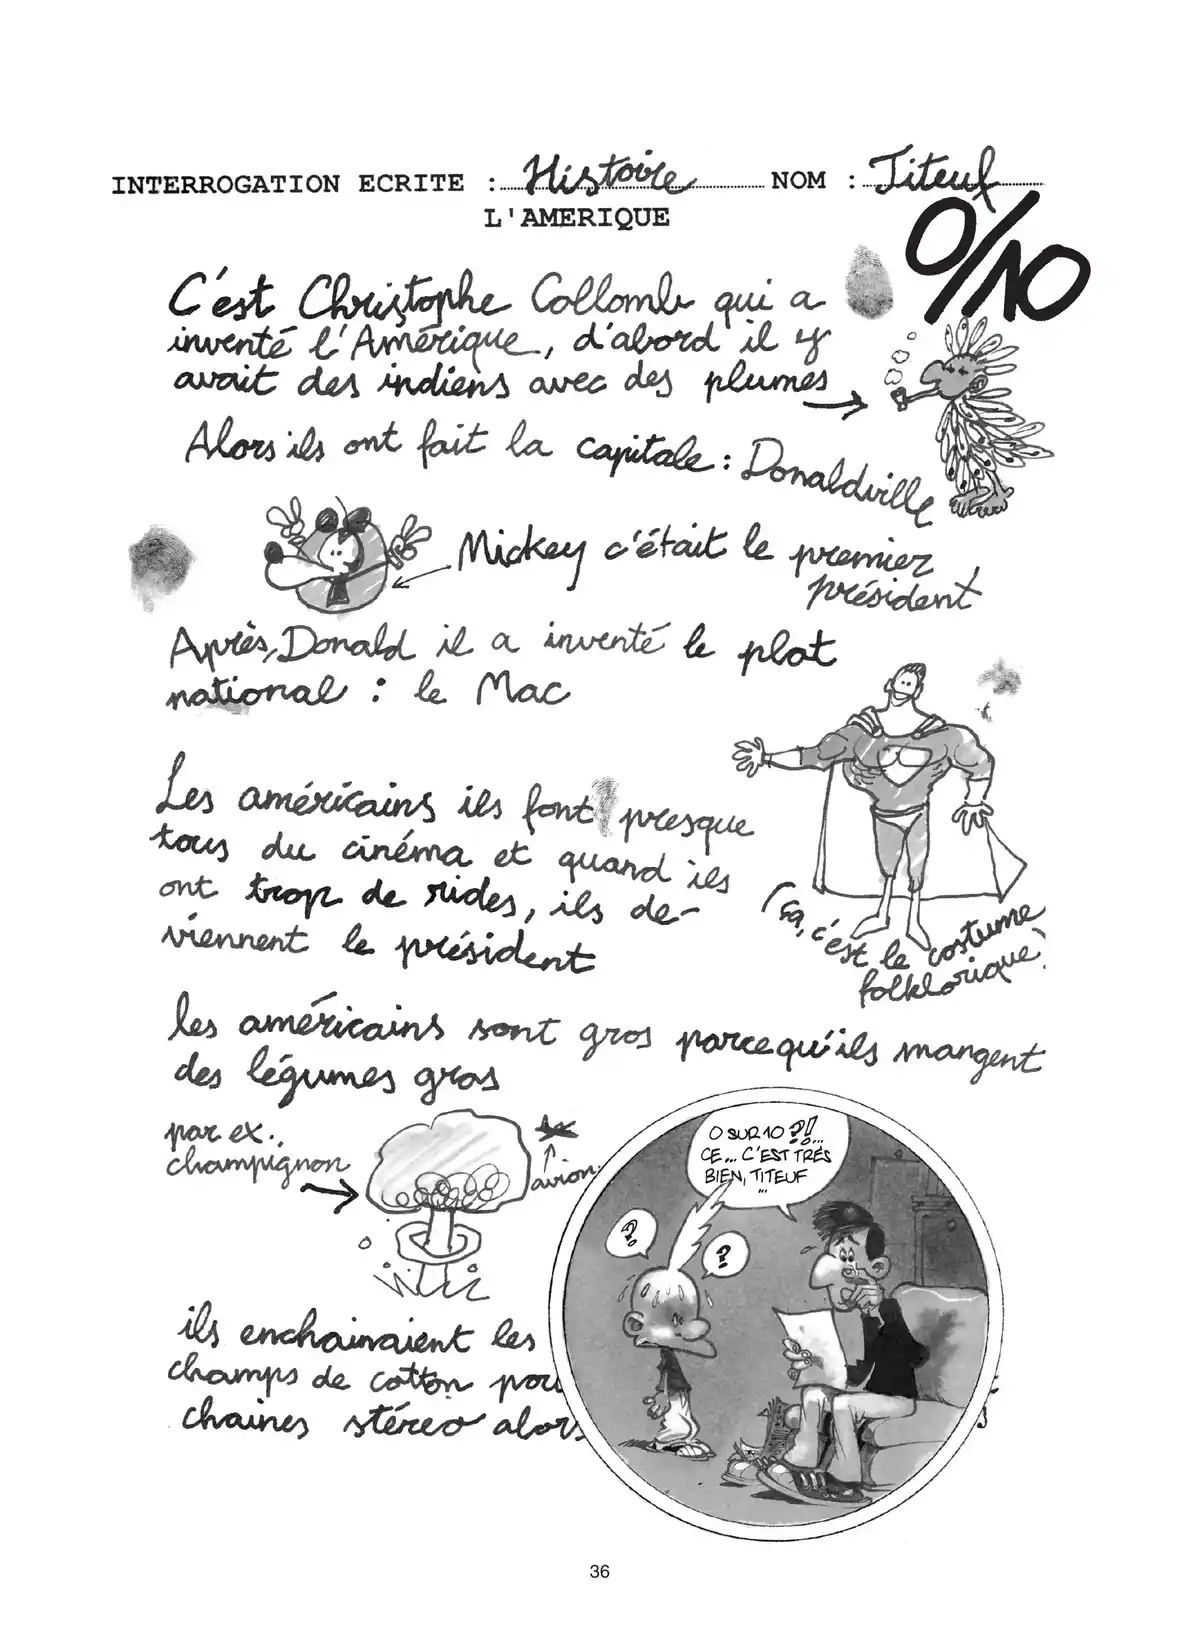 INTERROGATION ECRITE : Histoire NOM : Titeuf
L'AMERIQUE
0/10
C'est Christophe Collomb qui a
inventé l'Amérique, d'abord il y
avait des indiens avec des plumes
Alors ils ont fait la capitale : Donaldville
Mickey c'était le premier
président
Après, Donald il a inventé le plat
national : le Mac
Les américains ils font presque
tous du cinéma et quand ils
ont trop de rides, ils de-
viennent le président
(ça, c'est le costume
folklorique)
les américains sont gros parcequ'ils mangent
des légumes gros
par ex.,
champignon
avion
ils enchainaient les
champs de cotton
chaines stéreo alors
0 SUR 10 ?!...
CE... C'EST TRÉS
BIEN, TITEUF
...
?
?
36